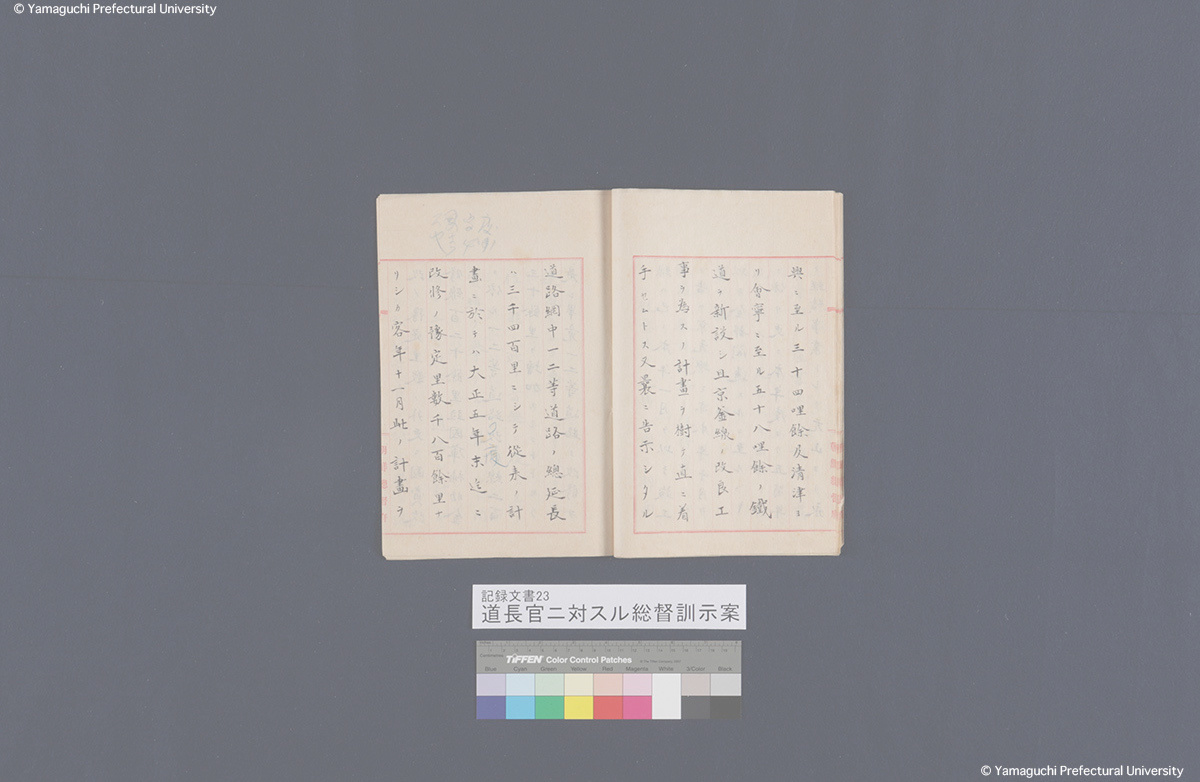 © Yamaguchi Prefectural University
與ニ至ル三十四哩餘及清津ヨ
リ會寧ニ至ル五十八哩餘ノ鐵
道ヲ新設シ且京釜線ノ改良工
事ヲ為スノ計畫ヲ樹テ直ニ着
手セムトス又曩ニ告示シタル
道路網中一二等道路ノ總延長
ハ三千四百里ニシテ從来ノ計
畫ニ於テハ大正五年末迄ニ
改修ノ豫定里數千八百餘里ナ
リシカ客年十一月此ノ計畫ヲ
記録文書23
道長官ニ対スル総督訓示案
TIFFEN Color Control Patches
Blue Cyan Green Yellow Red Magenta White 3/Color Black
© Yamaguchi Prefectural University